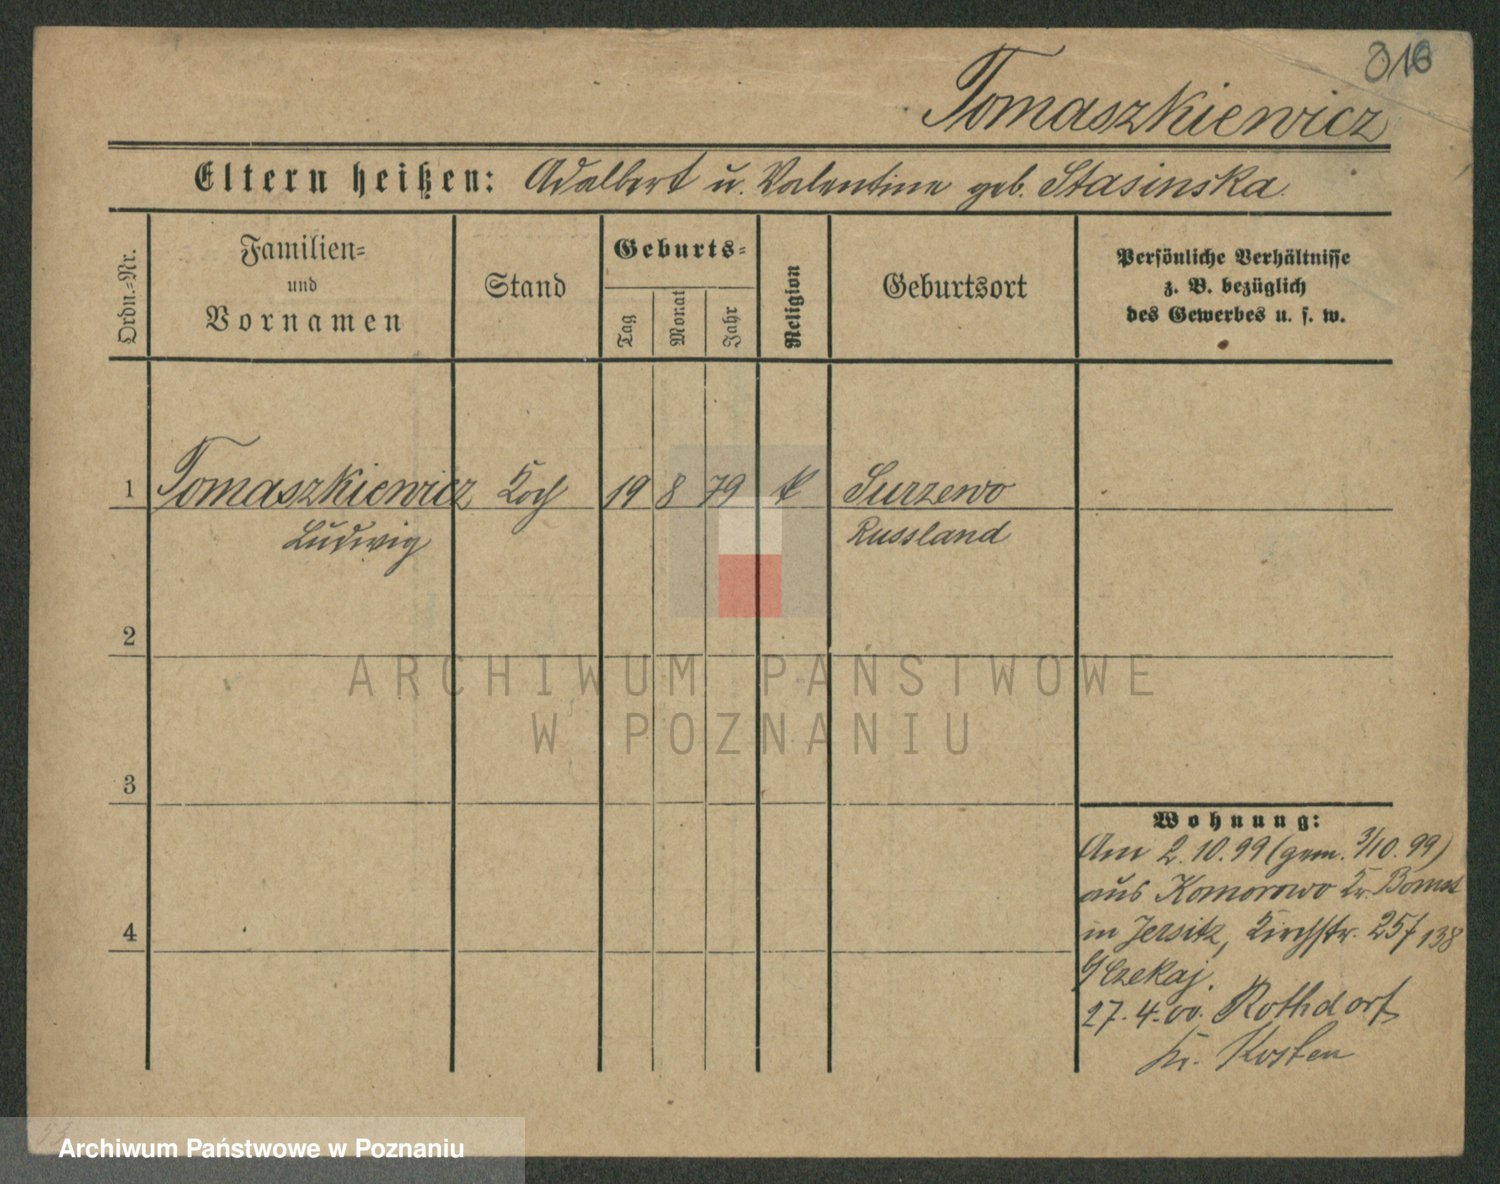 016
Tomaszkiewicz
Eltern heißen: Adalbert u. Valentine geb. Stasinska.
Ordn.-Nr.
Familien- und Vornamen
Stand
Geburts-
Tag
Monat
Jahr
Religion
Geburtsort
Persönliche Verhältnisse
z. B. bezüglich
des Gewerbes u. s. w.
1 Tomaszkiewicz Koch 19 8 79 k Surzewo
Ludwig Russland
2
3
4
ARCHIWUM PAŃSTWOWE
W POZNANIU
Wohnung:
Am 2.10.99 (gem. 3/10.99)
aus Komorowo Kr. Bomst
in Jersitz, Kirchstr. 25 138
b/ Czekaj.
27.4.00. Rothdorf
Kr. Kosten
Archiwum Państwowe w Poznaniu